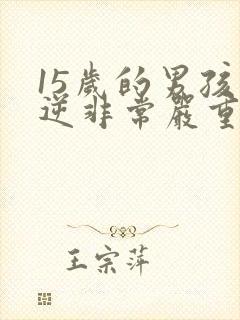 15歲的男孩
逆非常嚴重
王宗萍